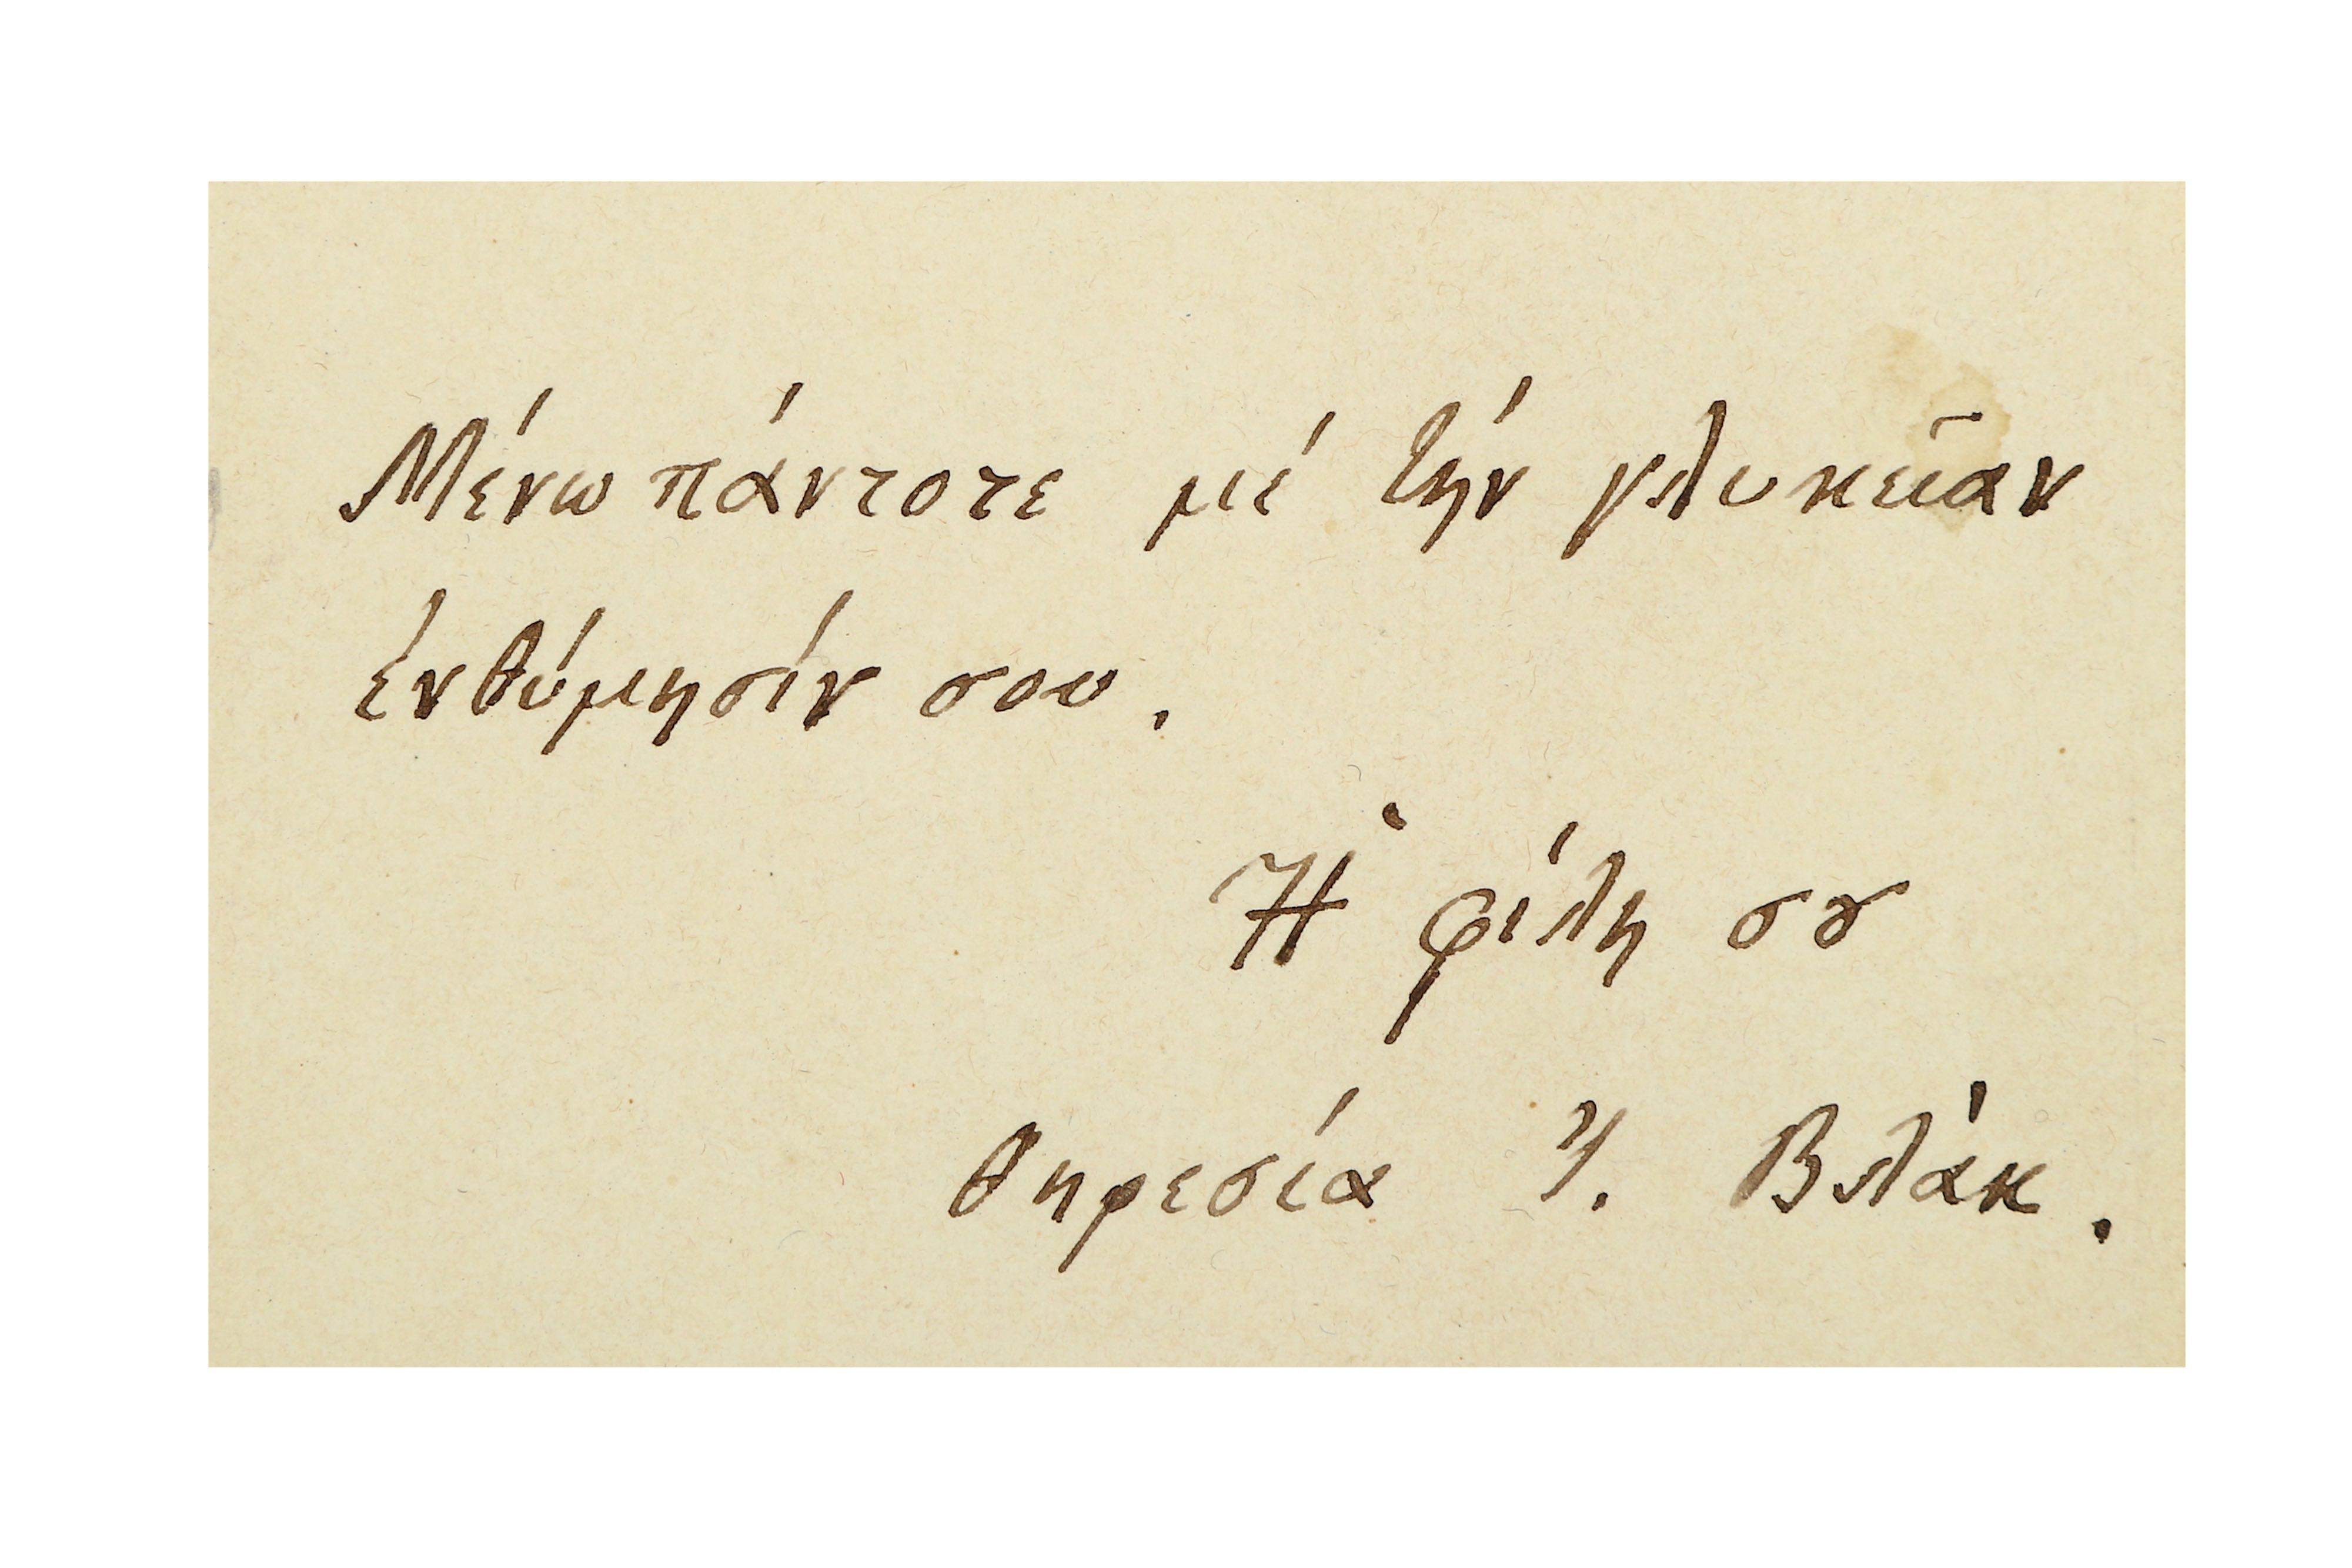 Μένω πάντοτε μέ τήν γλυκεῖαν
ἐνθύμησίν σου.
Ἡ φίλη σȣ
Θηρεσία Ἰ. Βλὰκ.